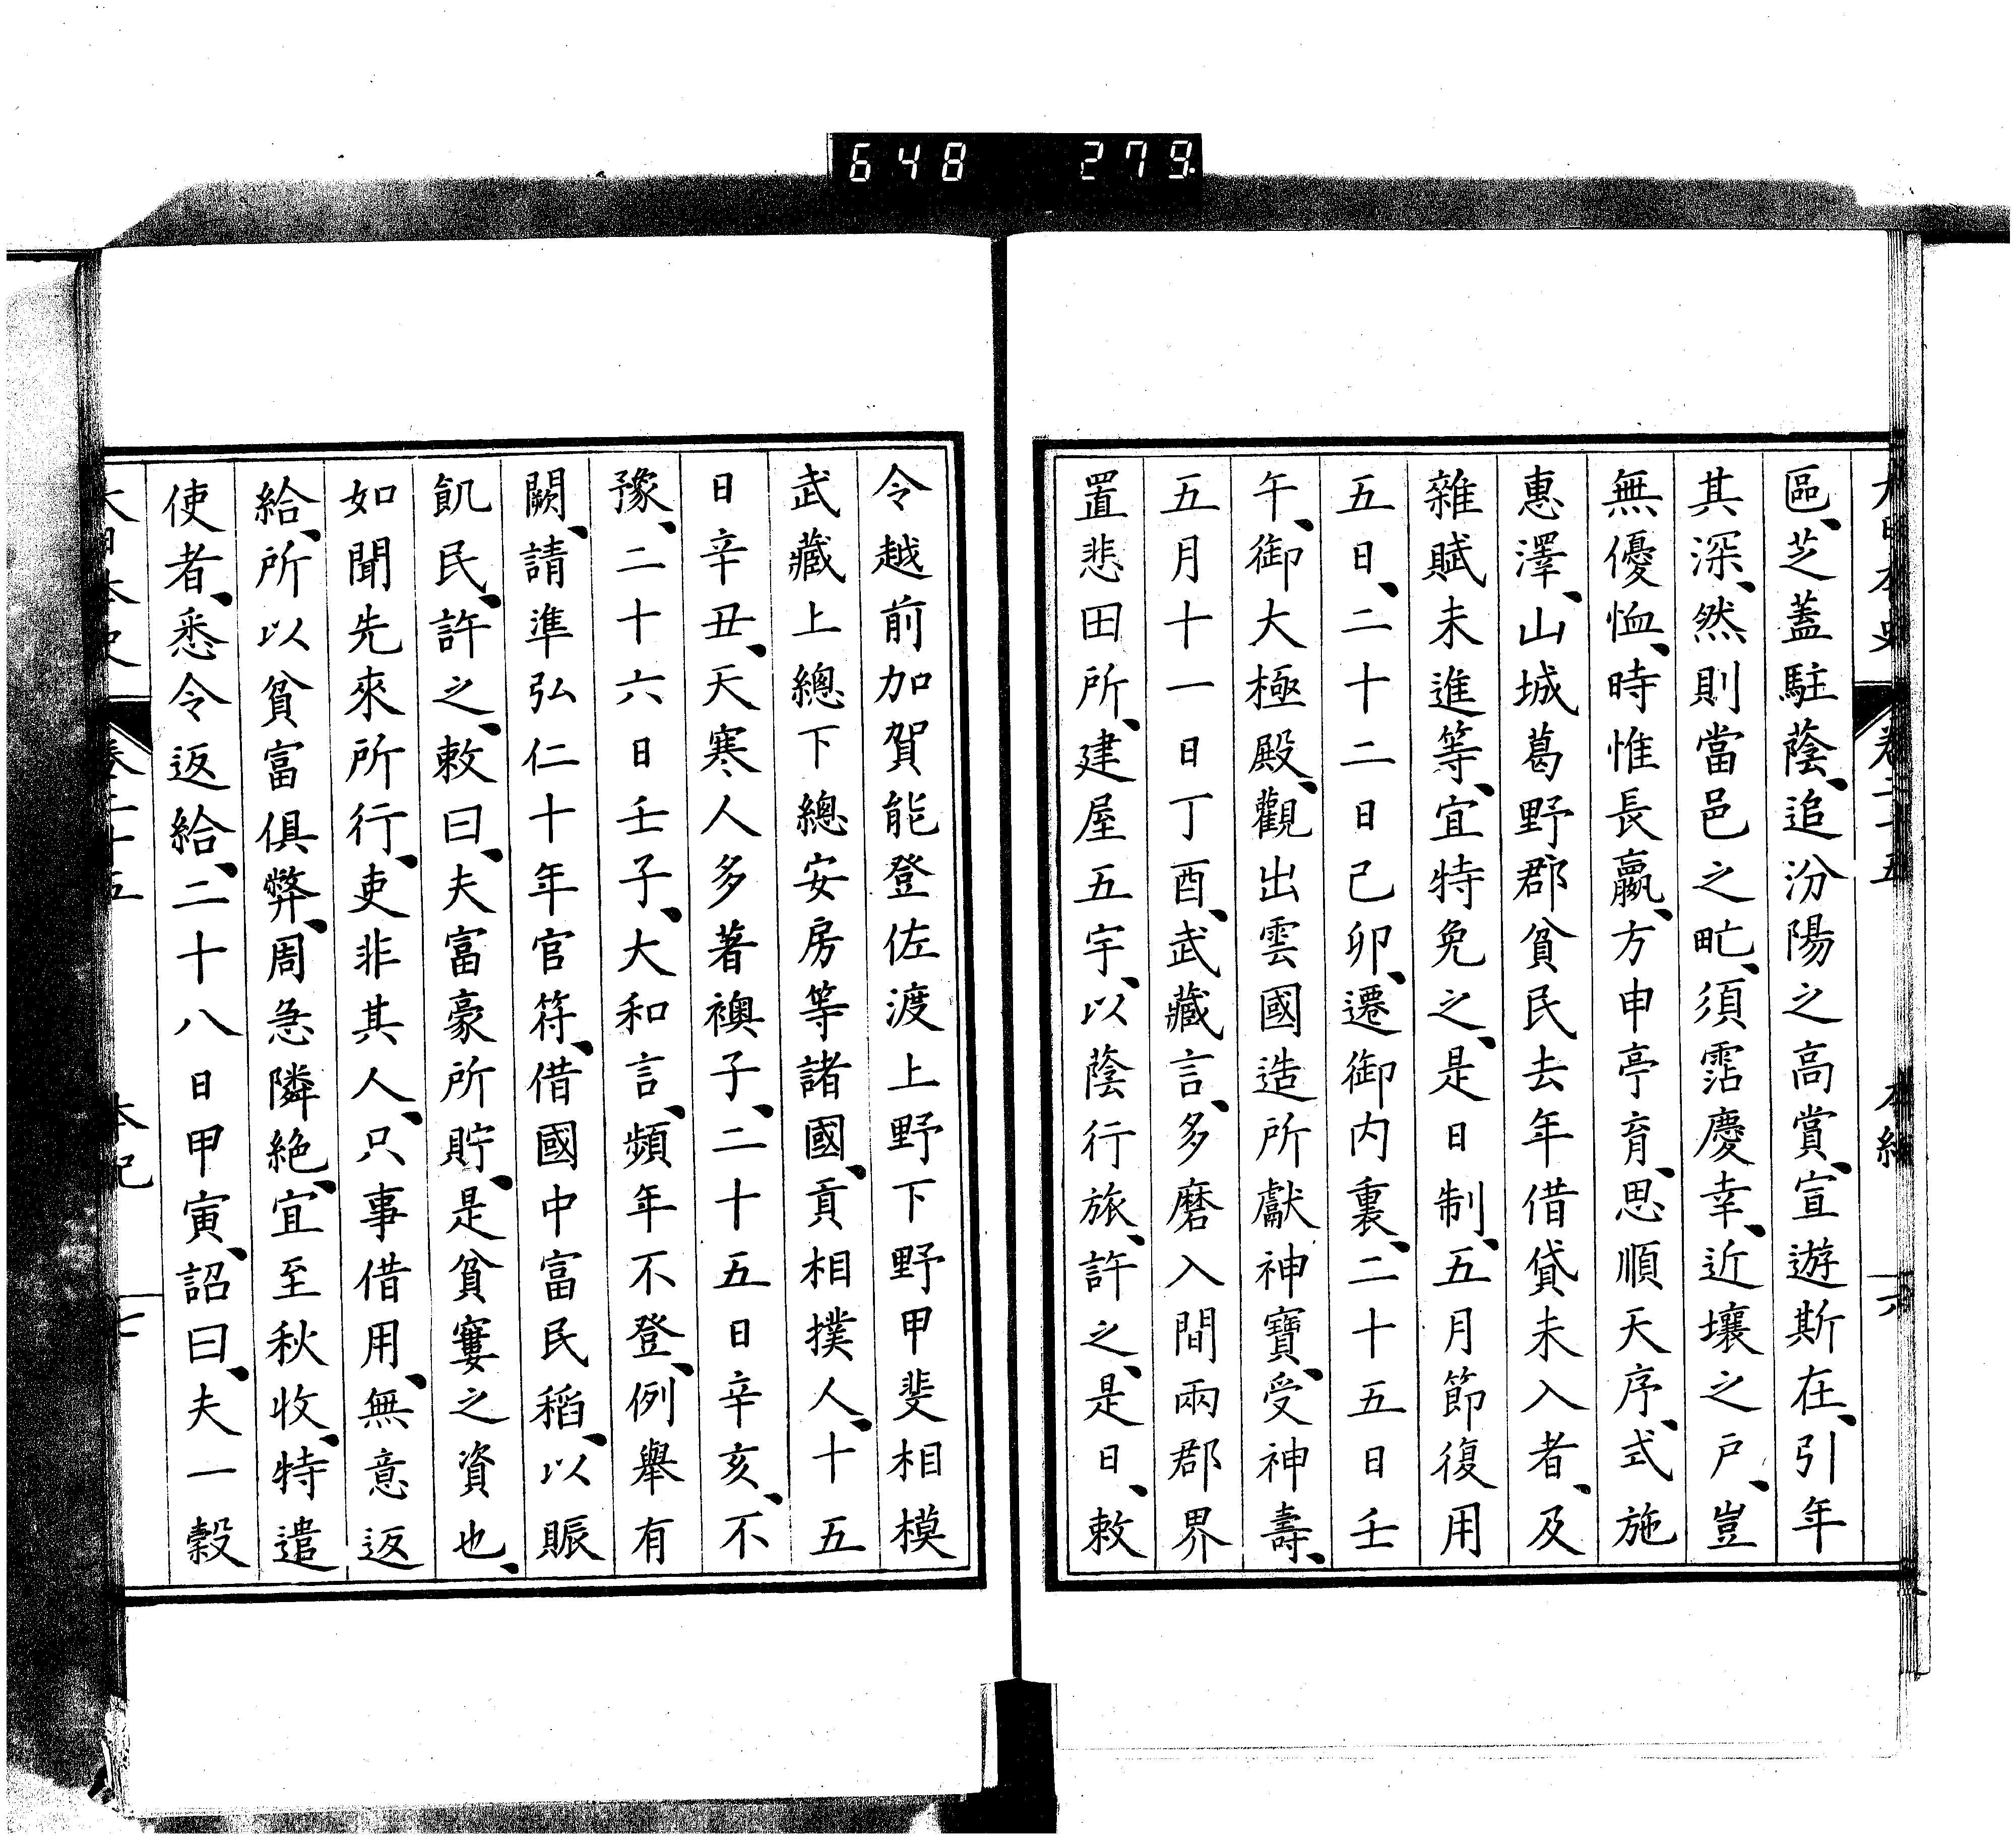 648 279
區、芝蓋駐蔭、追汾陽之高賞、宣遊斯在、引年
其深、然則當邑之甿、須霑慶幸、近壤之戸、豈
無優恤、時惟長嬴、方申亭育、思順天序、式施
惠澤、山城葛野郡貧民去年借貸未入者、及
雜賦未進等、宜特免之、是日制、五月節復用
五日、二十二日己卯、遷御内裏、二十五日壬
午、御大極殿、觀出雲國造所獻神寶、受神壽、
五月十一日丁酉、武藏言、多磨入間兩郡界
置悲田所、建屋五宇、以蔭行旅、許之、是日、敕
令越前加賀能登佐渡上野下野甲斐相模
武藏上總下總安房等諸國、貢相撲人、十五
日辛丑、天寒人多著襖子、二十五日辛亥、不
豫、二十六日壬子、大和言、頻年不登、例舉有
闕、請準弘仁十年官符、借國中富民稻、以賑
飢民、許之、敕曰、夫富豪所貯、是貧窶之資也、
如聞先來所行、吏非其人、只事借用、無意返
給、所以貧富俱弊、周急隣絶、宜至秋收、特遣
使者、悉令返給、二十八日甲寅、詔曰、夫一穀